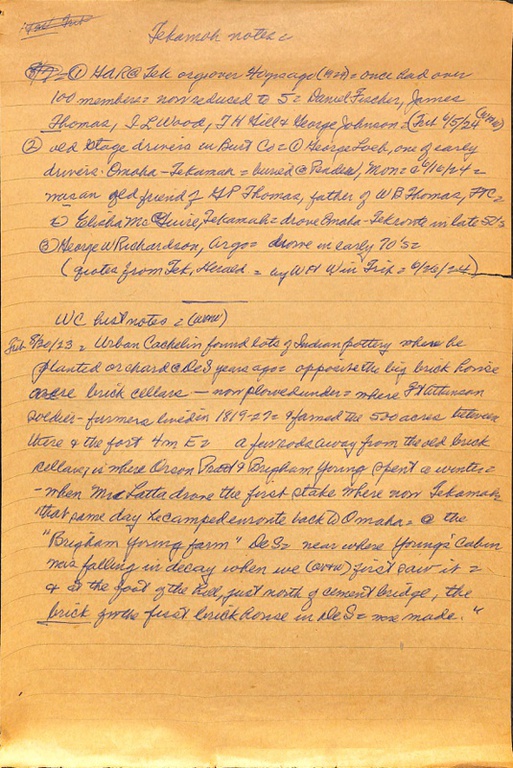 Tekamah notes =
① GAR @ Tek org over 40 yrs ago (WHW) = once had over
100 members = now reduced to 5 = Daniel Fischer, James
Thomas, I L Wood, T H Gill & George Johnson = (Trib 6/5/24 (WHW)
② old stage drivers in Burt Co = ① George Loeb, one of early
drivers. Omaha - Tekamah = buried @ Mon = 6/16/24 =
was an old friend of G P Thomas, father of W B Thomas, FtC =
2) Elisha McGuire, Tekamah = drove Omaha - Tek route in late 50's
③ George W Richardson, Argo = drove in early 70's =
(quotes from Tek, Herald = by WHW in Trib = 6/26/24)
WC hist notes = (WHW)
Trib 8/30/23 = Urban Cachelin found lots of Indian pottery where he
planted orchard @ DeS years ago = opposite the big brick house
were brick cellars - now plowed under = where Ft Atkinson
soldier - farmers lived in 1819-27 = & farmed the 500 acres between
there & the fort 4m E = a few rods away from the old brick
cellars, is where Orson Pratt & Brigham Young spent a winter =
- when Mr Latta drove the first stake where now Tekamah
that same day he camped enroute back to Omaha = @ the
"Brigham Young farm" DeS = near where Young's Cabin
was falling in decay when we (WHW) first saw it =
& at the foot of the hill, just north of cement bridge, the
brick for the first brick house in DeS = was made."